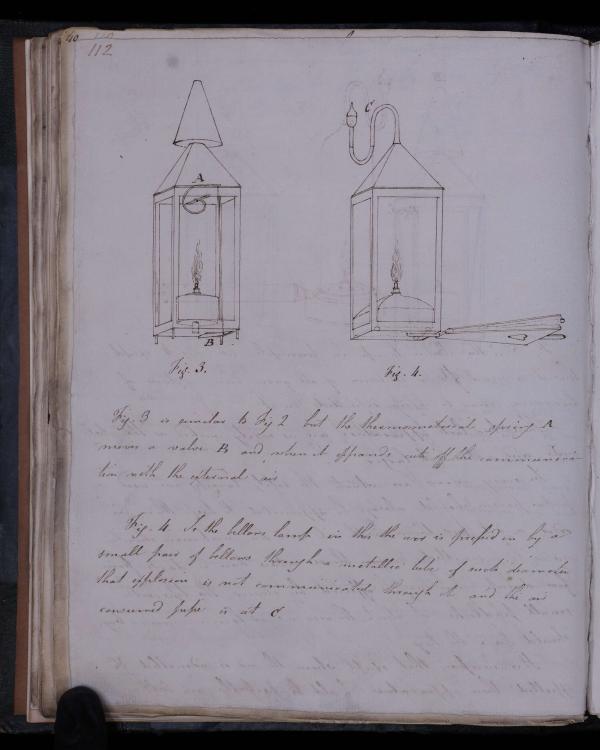 112
C
A
B
Fig. 3.
Fig. 4.
Fig. 3 is similar to Fig 2 but the thermometrical spring A
moves a valve B and when it expands cuts off the communica-
tion with the external air
Fig. 4 Is the bellows lamp in this the air is pressed in by a
small pair of bellows through a metallic tube of such diameter
that explosion is not communicated through it and the air
consumed is at C